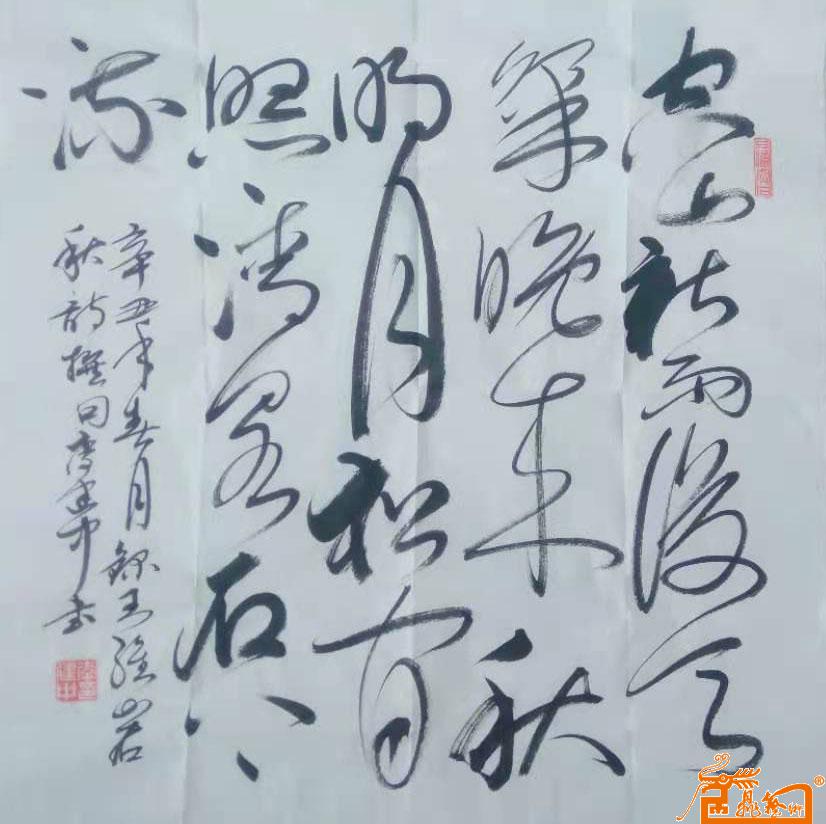 空山新雨後天
氣晚来秋
明月松间
照清泉石上
流
辛丑年春月錄王維山居
秋詩